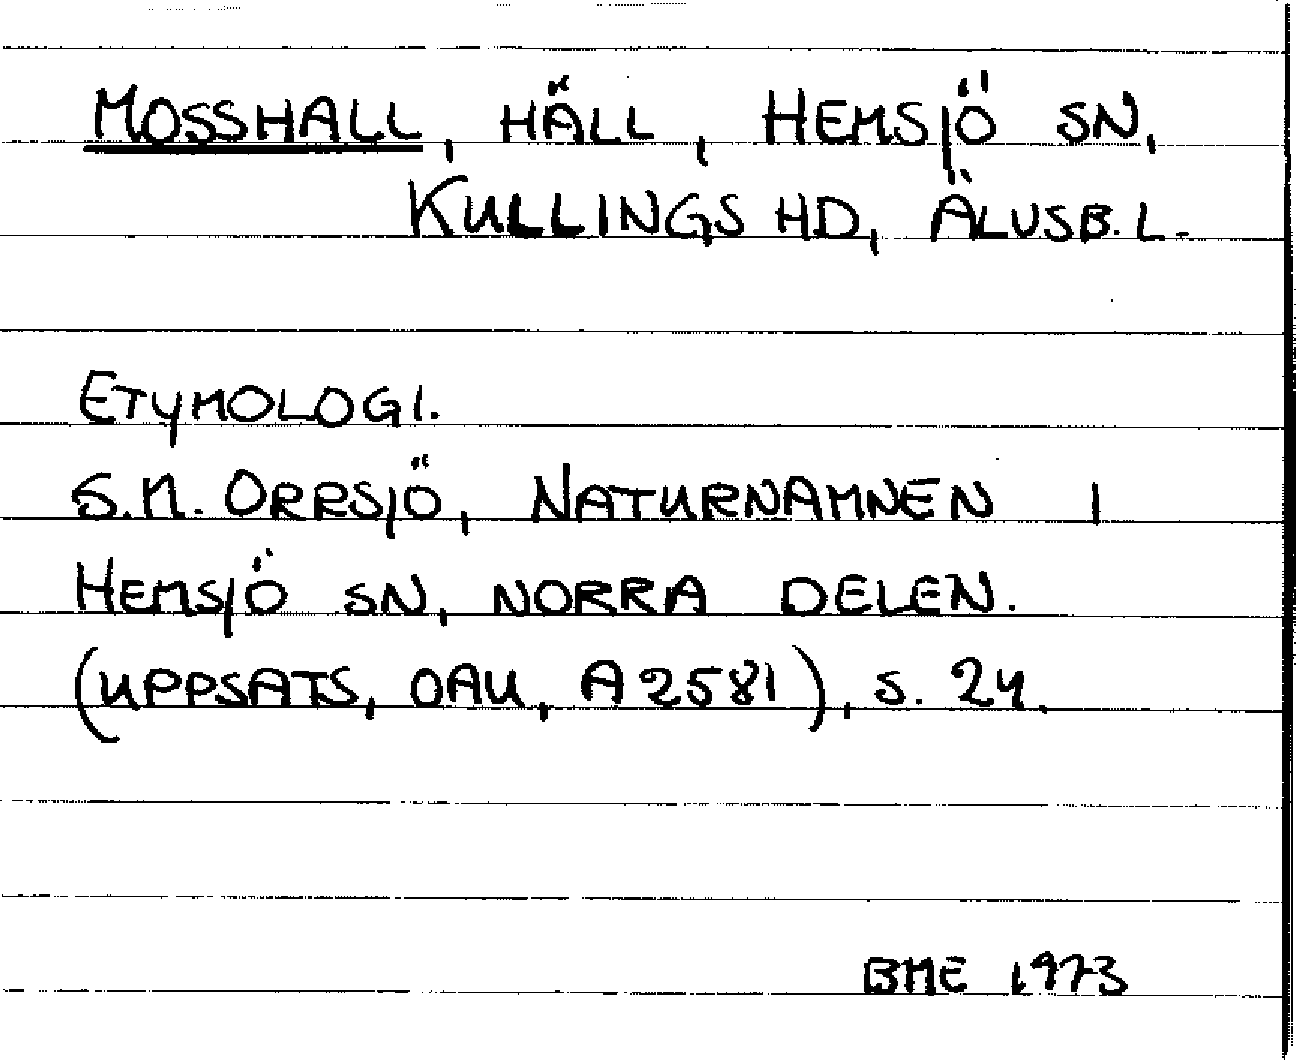 MOSSHALL, HÄLL, HEMSJÖ SN,
KULLINGS HD, ÄLVSB. L.
ETYMOLOGI.
S.M. ORRSJÖ, NATURNAMNEN I
HEMSJÖ SN, NORRA DELEN.
(UPPSATS, OAU, A 2581), S. 24.
BME 1973